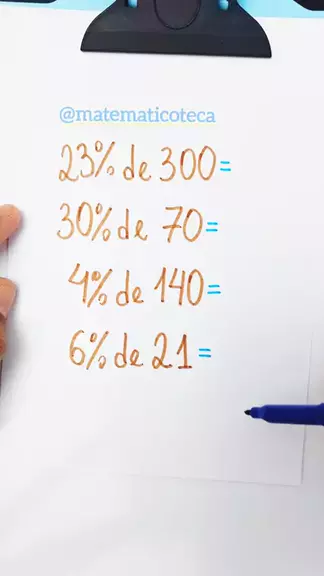 @matematicoteca
23% de 300=
30% de 70=
4% de 140=
6% de 21=